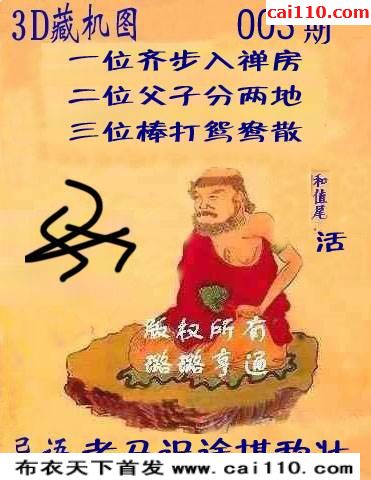 cai110.com
3D藏机图 003期
一位齐步入禅房
二位父子分两地
三位棒打鸳鸯散
和值尾
活
版权所有
璐璐亨通
布衣天下首发 www.cai110.com